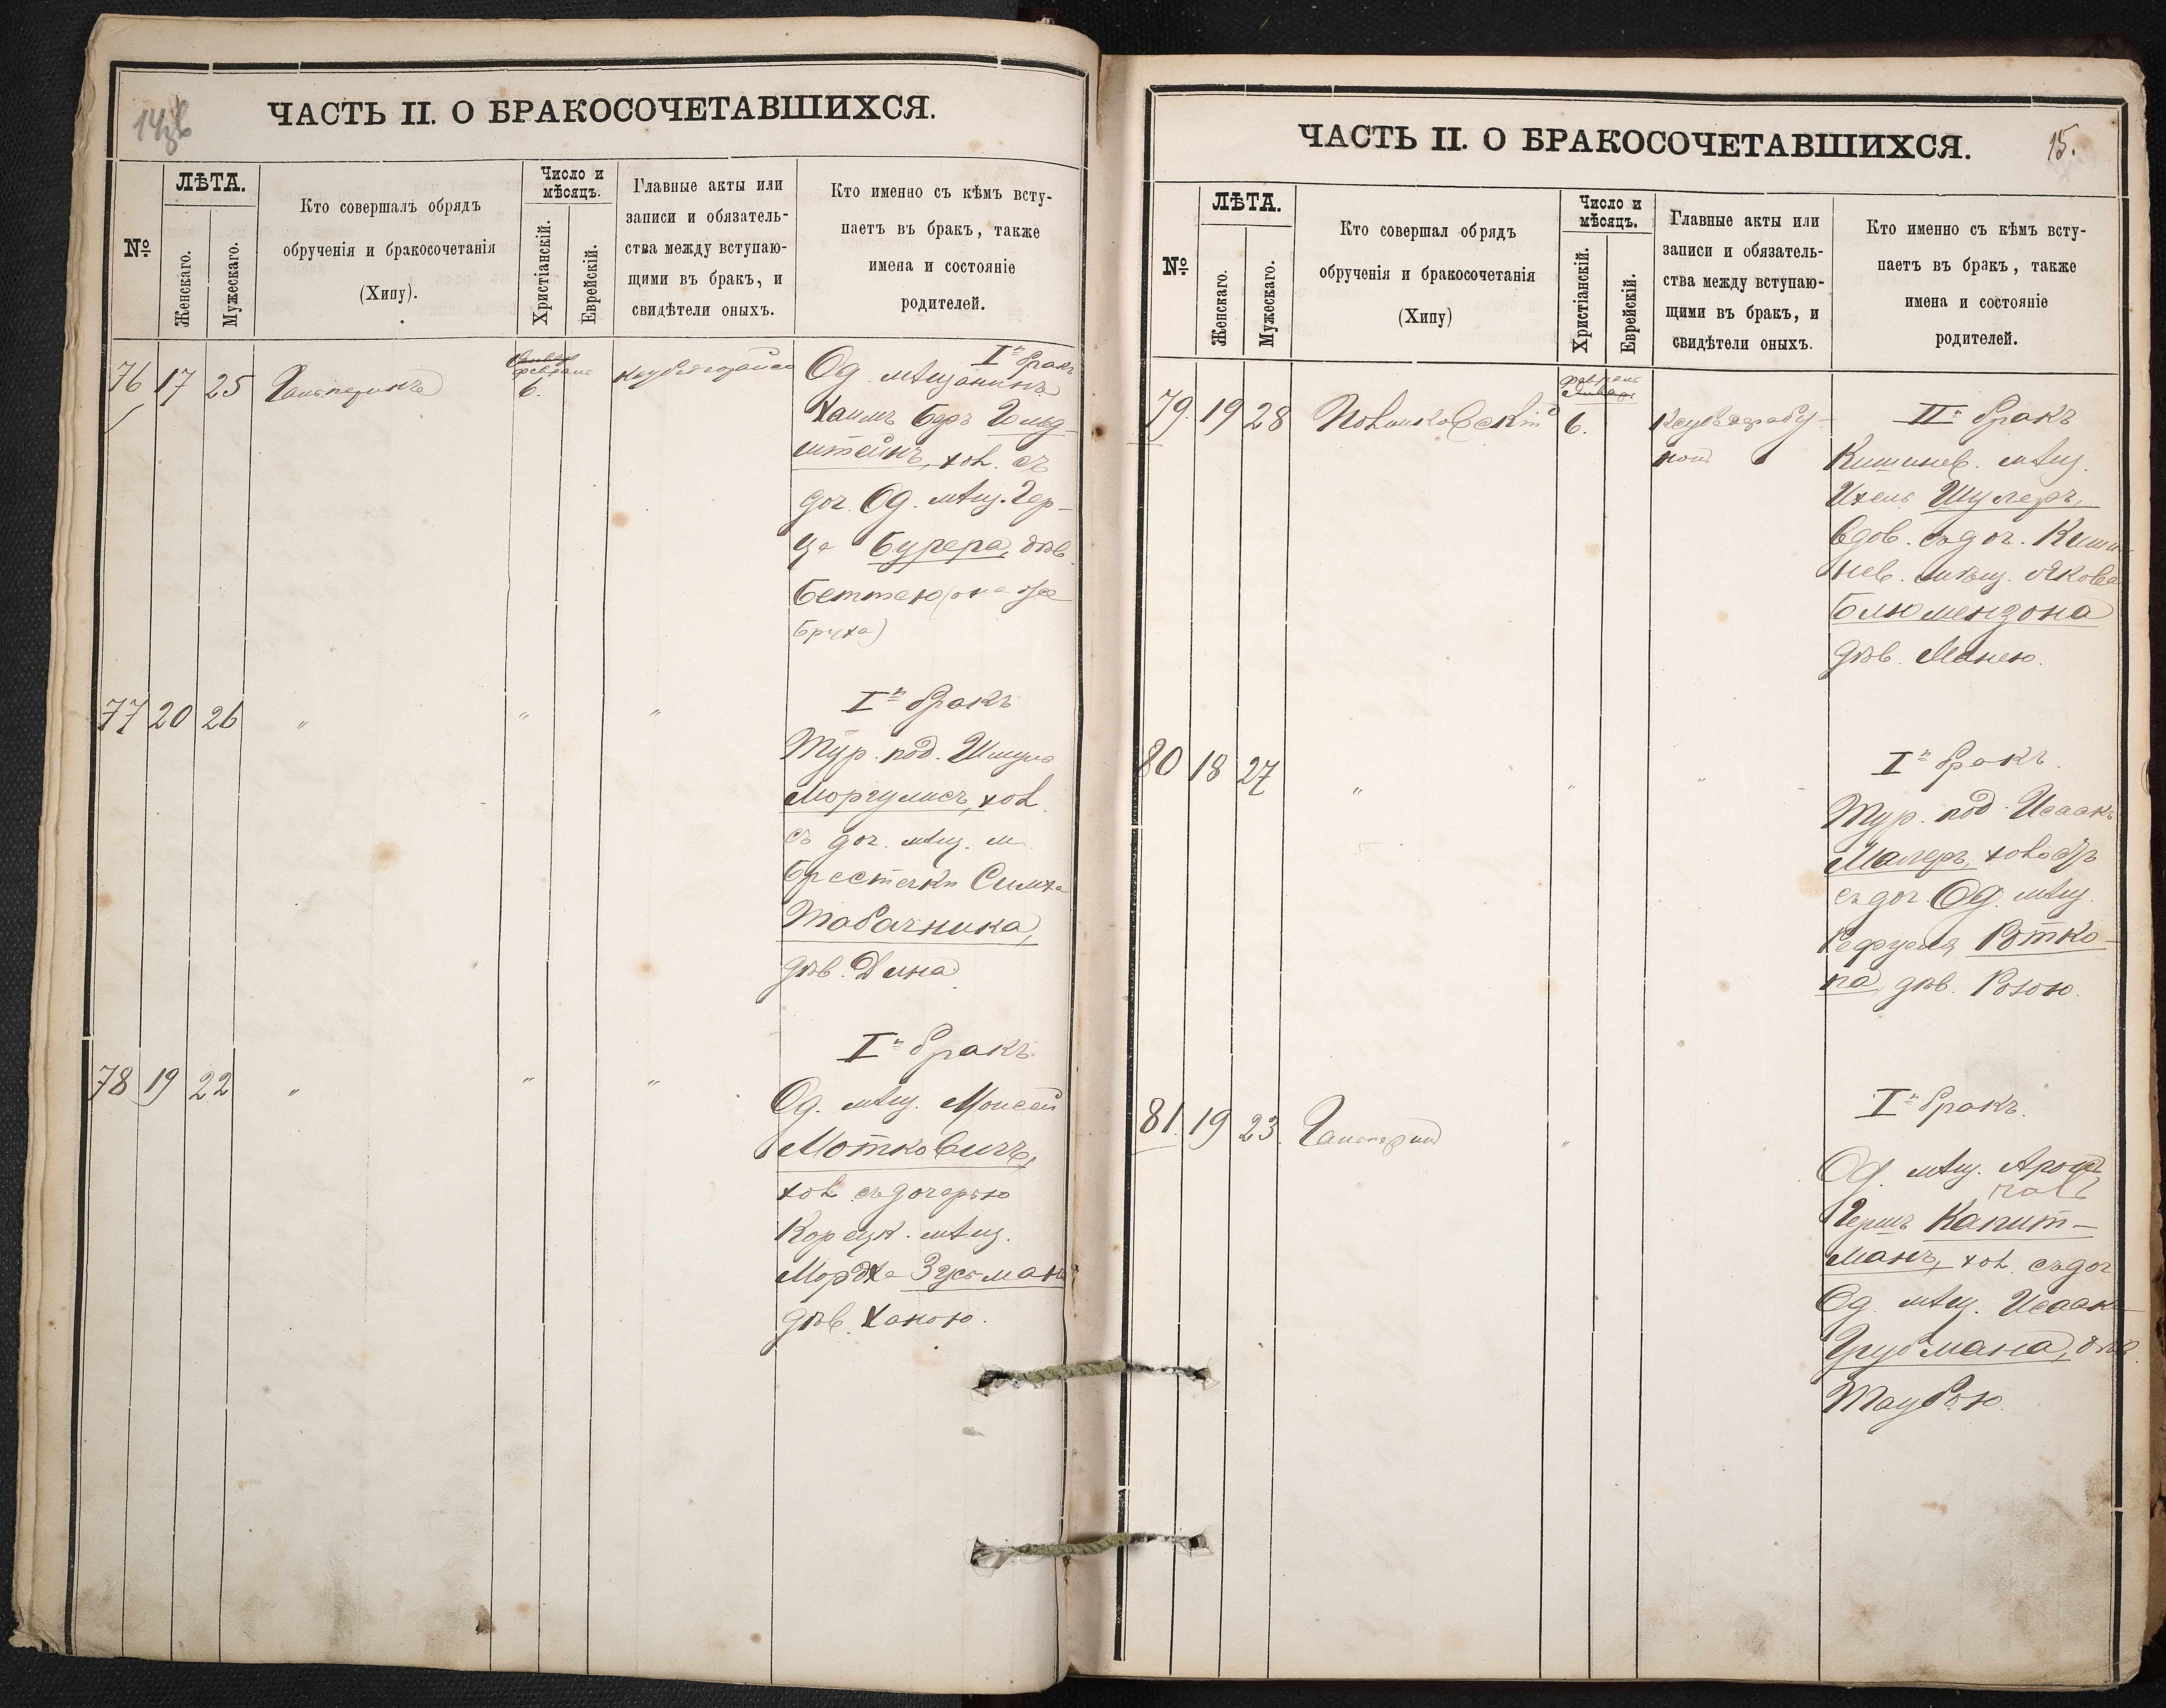 14
ЧАСТЬ II. О БРАКОСОЧЕТАВШИХСЯ.
№
ЛѢТА.
Женскаго.
Мужескаго.
Кто совершалъ обрядъ
обрученія и бракосочетанія
(Хипу).
Число и
мѣсяцъ.
Христіанскій.
Еврейскій.
Главные акты или
записи и обязатель-
ства между вступаю-
щими въ бракъ, и
свидѣтели оныхъ.
Кто именно съ кѣмъ всту-
паетъ въ бракъ, также
имена и состояніе
родителей.
76 17 25 Гальперинъ
февраля
6.
Iй бракъ
Од. мѣщанинъ
Хаимъ Беръ Гольд-
штейнъ, хол. съ
доч. Од. мѣщ. Гер-
ца Бурера, дѣв.
Беттею (она же
Бруха)
77 20 26 " " "
Iй бракъ
Тур. под. Шмуль
Моргулисъ, хол.
съ доч. мѣщ. м.
Берестечки Симха
Табачника,
дѣв. Дина
78 19 22 " " "
Iй бракъ
Од. мѣщ. Моисей
Мотковичъ,
хол. съ дочерью
Корецк. мѣщ.
Мордха Зусьмана
дѣв. Ханою.
ЧАСТЬ II. О БРАКОСОЧЕТАВШИХСЯ.
15.
№
ЛѢТА.
Женскаго.
Мужескаго.
Кто совершал обрядъ
обрученія и бракосочетанія
(Хипу)
Число и
мѣсяцъ.
Христіанскій.
Еврейскій.
Главные акты или
записи и обязатель-
ства между вступаю-
щими въ бракъ, и
свидѣтели оныхъ.
Кто именно съ кѣмъ всту-
паетъ въ бракъ, также
имена и состояніе
родителей.
79. 19 28
февраль
январь
6.
IIй бракъ
Кишинев. мѣщ.
Ихель Шулеръ,
вдов. съ доч. Киши-
нев. мѣщ. Якова
Блюмензона
дѣв. Манею.
80 18 27 " " "
Iй бракъ.
Тур. под. Исаакъ
Малеръ, холост
съ доч. Од. мѣщ.
Рефуеля Ротко-
па, дѣв. Розою.
81. 19 23. Гальперин "
Iй бракъ.
Од. мѣщ. Аронъ
Гершъ Капит-
манъ, хол. съ доч
Од. мѣщ. Исаака
Грубмана, дѣв.
Таубою.